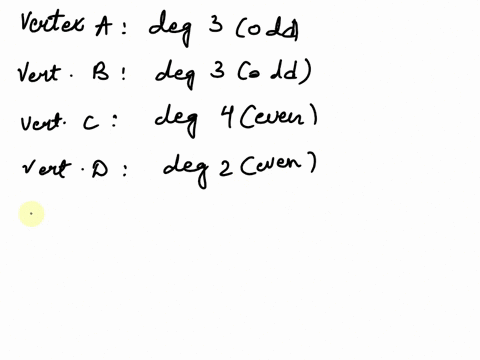 Vertex A: deg 3 (odd)
Vert. B: deg 3 (odd)
Vert. C: deg 4 (even)
Vert. D: deg 2 (even)